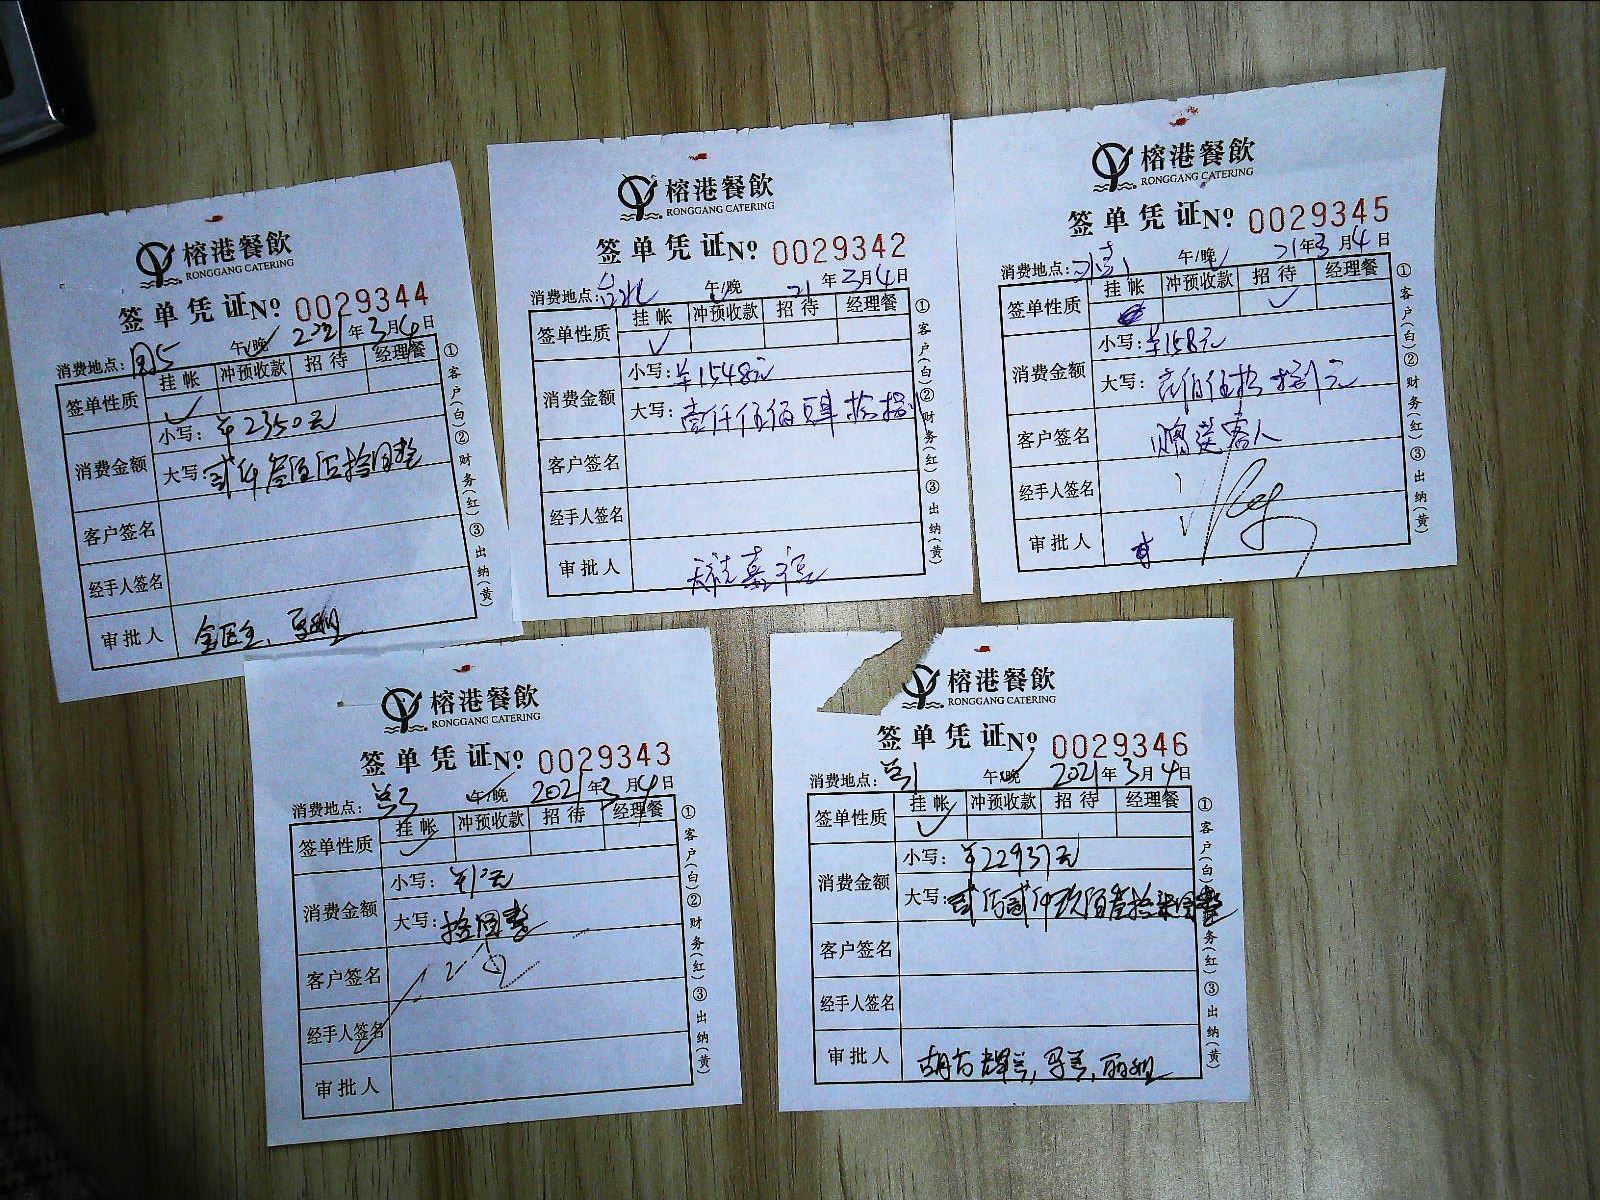 榕港餐飲
RONGGANG CATERING
签单凭证 № 0029344
消费地点: 午/晚 2021年3月4日
签单性质 挂帐 冲预收款 招待 经理餐
✓
消费金额 小写: ¥2350元
大写: 贰仟叁佰伍拾圆整
客户签名
经手人签名
审批人
①客户(白)②财务(红)③出纳(黄)
榕港餐飲
RONGGANG CATERING
签单凭证 № 0029342
消费地点: 台北 午/晚 21年3月4日
签单性质 挂帐 冲预收款 招待 经理餐
✓
消费金额 小写: ¥1548元
大写: 壹仟伍佰肆拾捌
客户签名
经手人签名
审批人
①客户(白)②财务(红)③出纳(黄)
榕港餐飲
RONGGANG CATERING
签单凭证 № 0029345
消费地点: 午/晚 21年3月4日
签单性质 挂帐 冲预收款 招待 经理餐
✓
消费金额 小写: ¥158元
大写: 壹佰伍拾捌元
客户签名 赠送客人
经手人签名
审批人
①客户(白)②财务(红)③出纳(黄)
榕港餐飲
RONGGANG CATERING
签单凭证 № 0029343
消费地点: 午/晚 2021年3月4日
签单性质 挂帐 冲预收款 招待 经理餐
✓
消费金额 小写: ¥10元
大写: 拾圆整
客户签名
经手人签名
审批人
①客户(白)②财务(红)③出纳(黄)
榕港餐飲
RONGGANG CATERING
签单凭证 № 0029346
消费地点: 午/晚 2021年3月4日
签单性质 挂帐 冲预收款 招待 经理餐
✓
消费金额 小写: ¥22937元
大写: 贰万贰仟玖佰叁拾柒圆整
客户签名
经手人签名
审批人
①客户(白)②财务(红)③出纳(黄)